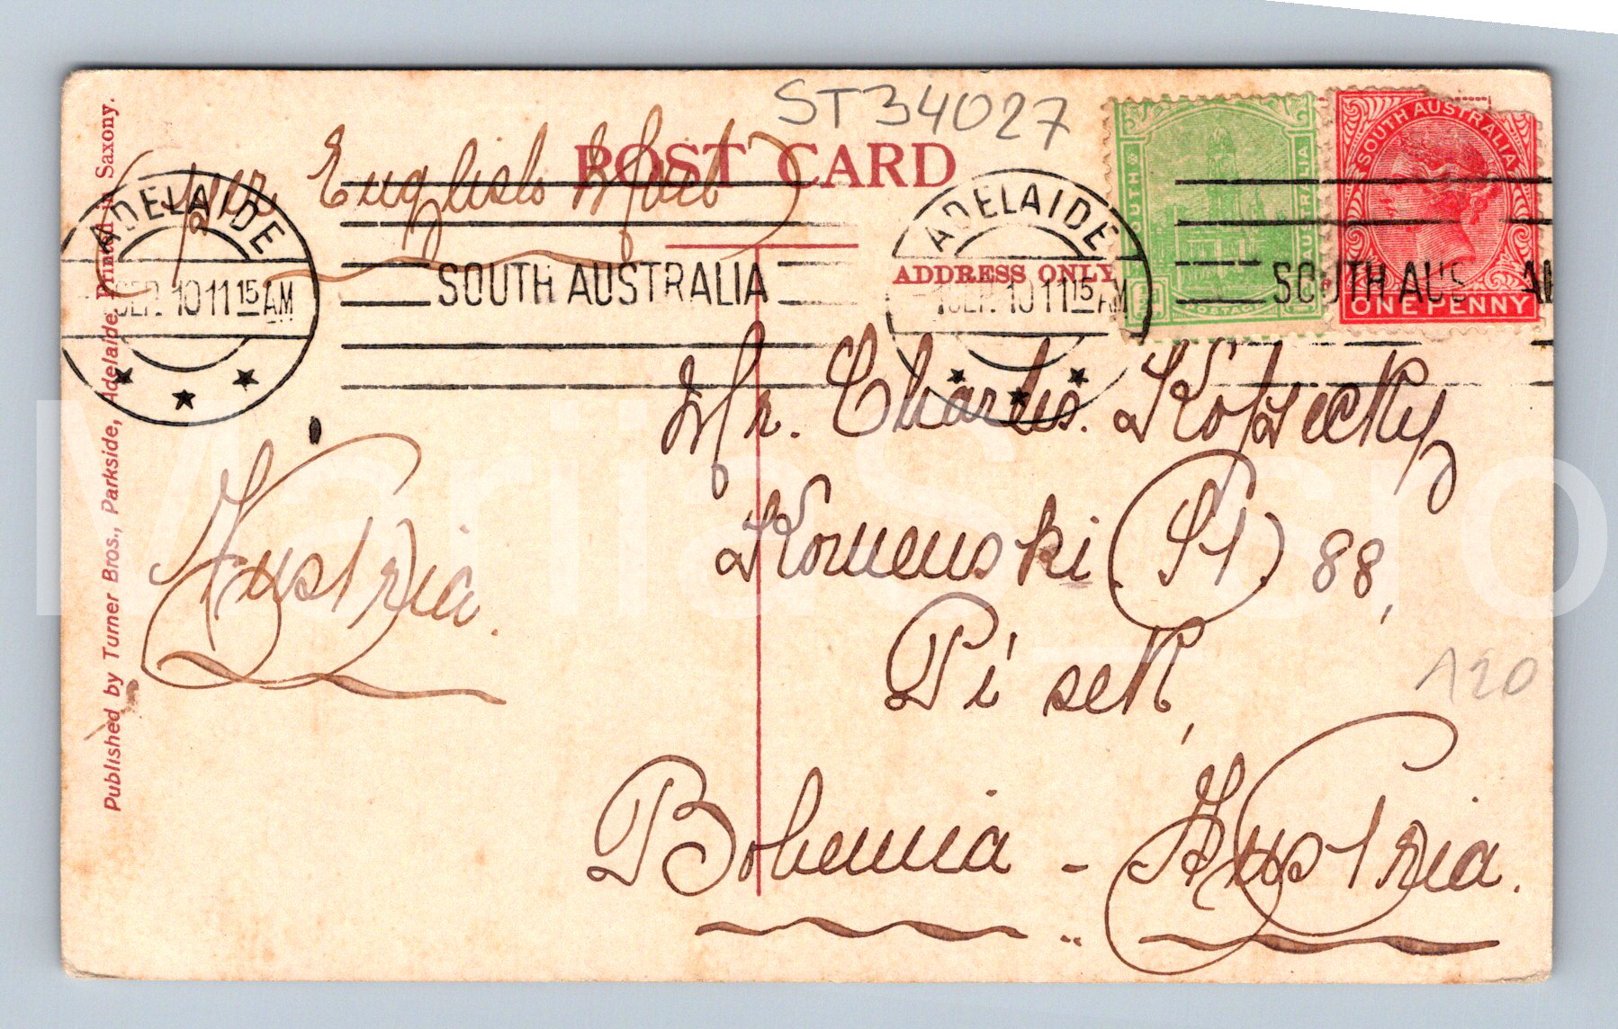 ST34027
per English Mail
POST CARD
ADDRESS ONLY
ADELAIDE
10 11 15 AM
SOUTH AUSTRALIA
ADELAIDE
10 11 15 AM
SOUTH AUS
SOUTH AUSTRALIA
POSTAGE
SOUTH AUSTRALIA
ONE PENNY
Published by Turner Bros., Parkside, Adelaide. Printed in Saxony.
Mr. Charles. Kopecky
Komenski (St) 88,
Austria.
Pisek,
120
Bohemia - Austria.